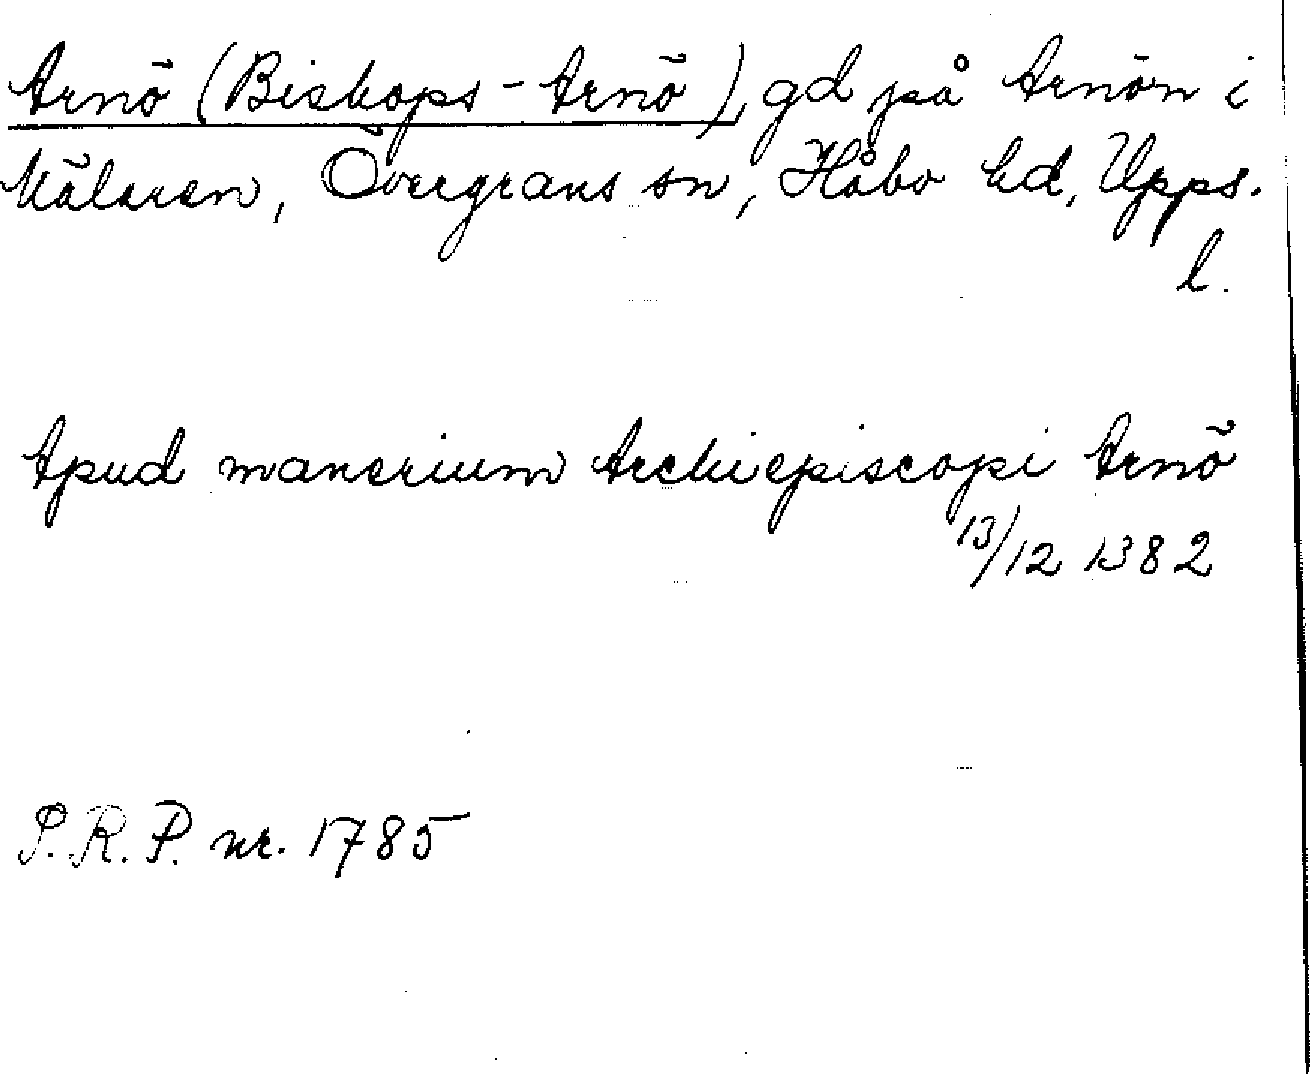 Arnö (Biskops-Arnö), gd på Arnön i
Mälaren, Övergrans sn, Håbo hd, Upps.
l.
Apud manerium Archiepiscopi Arnö
13/12 1382
S.R.P. nr. 1785